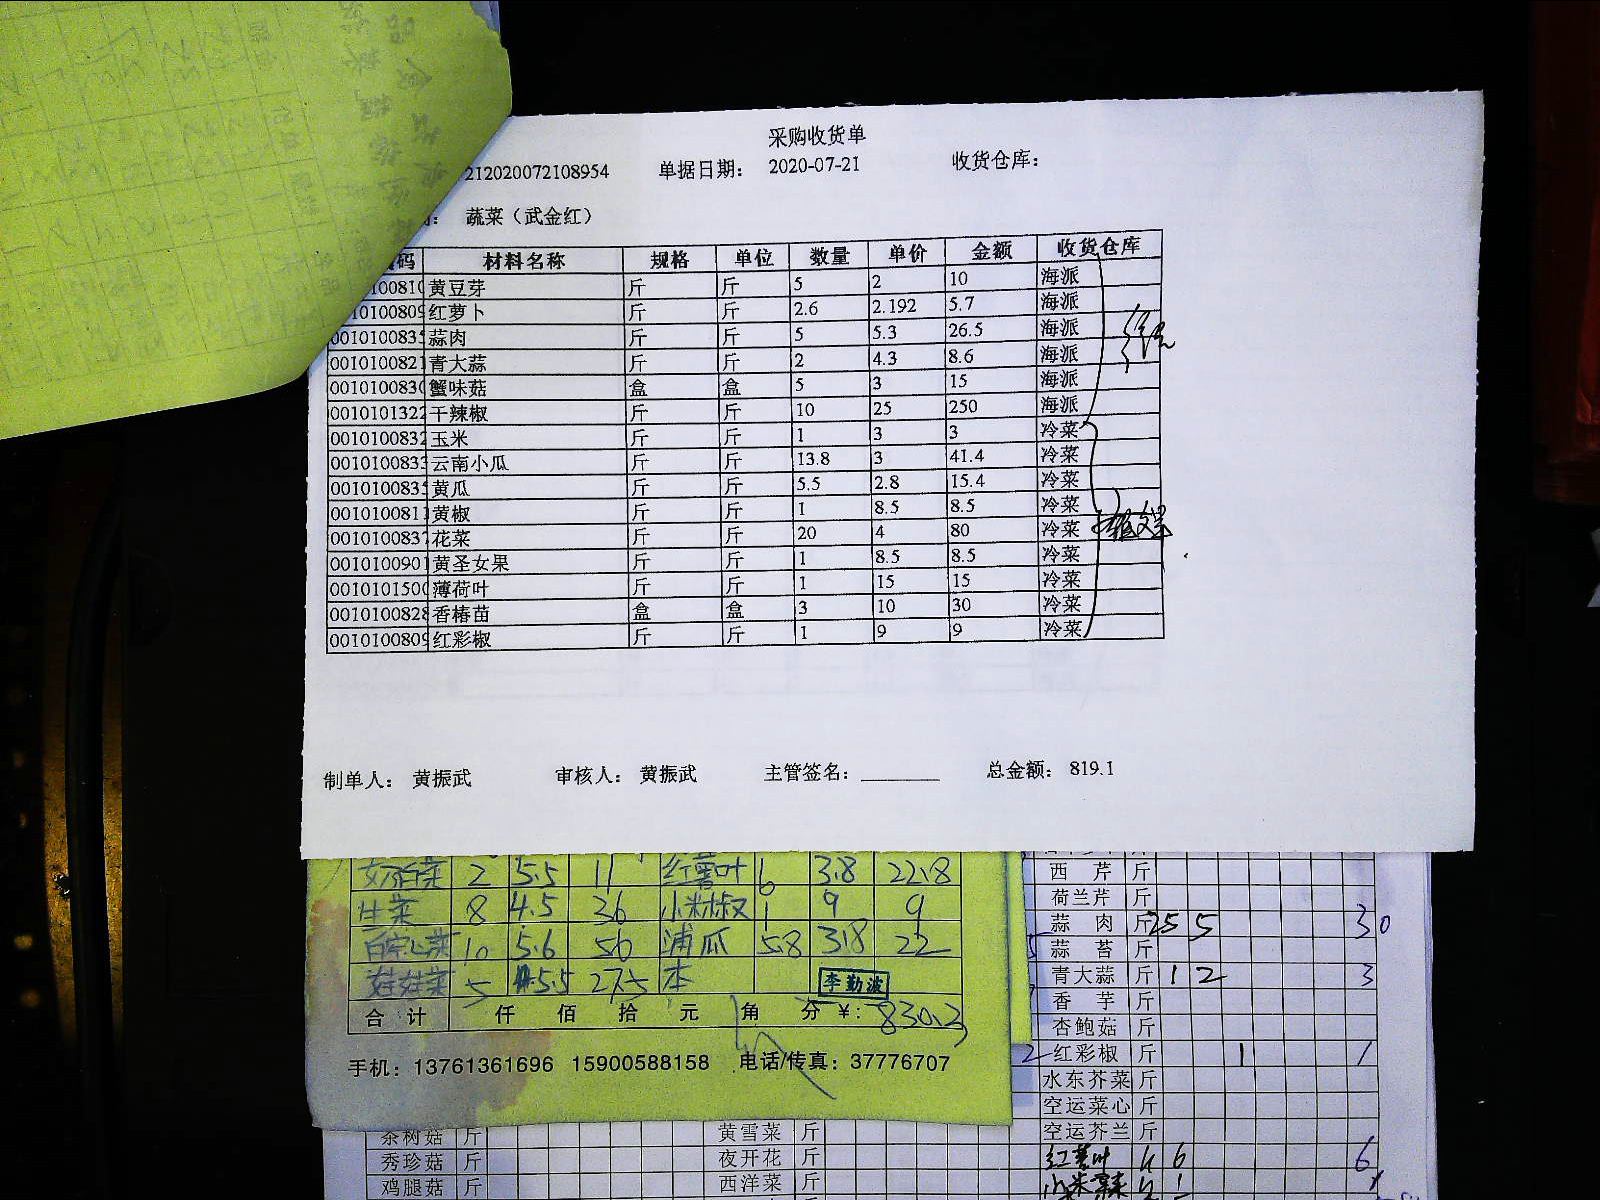 采购收货单
212020072108954 单据日期： 2020-07-21 收货仓库：
： 蔬菜（武金红）
码 材料名称 规格 单位 数量 单价 金额 收货仓库
10081 黄豆芽 斤 斤 5 2 10 海派
010100809 红萝卜 斤 斤 2.6 2.192 5.7 海派
001010083 蒜肉 斤 斤 5 5.3 26.5 海派
0010100821 青大蒜 斤 斤 2 4.3 8.6 海派
001010083 蟹味菇 盒 盒 5 3 15 海派
0010101322 干辣椒 斤 斤 10 25 250 海派
0010100832 玉米 斤 斤 1 3 3 冷菜
001010083 云南小瓜 斤 斤 13.8 3 41.4 冷菜
001010083 黄瓜 斤 斤 5.5 2.8 15.4 冷菜
0010100811 黄椒 斤 斤 1 8.5 8.5 冷菜
0010100837 花菜 斤 斤 20 4 80 冷菜
0010100901 黄圣女果 斤 斤 1 8.5 8.5 冷菜
0010101500 薄荷叶 斤 斤 1 15 15 冷菜
0010100828 香椿苗 盒 盒 3 10 30 冷菜
0010100809 红彩椒 斤 斤 1 9 9 冷菜
制单人： 黄振武 审核人： 黄振武 主管签名： 总金额： 819.1
2 5.5 11 红薯叶 6 3.8 22.8
生菜 8 4.5 36 小米椒 1 9 9
10 5.6 56 浦瓜 5.8 3.8 22
娃娃菜 5 5.5 27.5 本 李勤波
合计 仟 佰 拾 元 角 分 ¥: 830.3
手机：13761361696 15900588158 电话/传真：37776707
西芹 斤
荷兰芹 斤
蒜肉 斤 25 5 30
蒜苔 斤
青大蒜 斤 1 2 3
香芋 斤
杏鲍菇 斤
红彩椒 斤 1 1
水东芥菜 斤
空运菜心 斤
茶树菇 斤 黄雪菜 斤 空运芥兰 斤
秀珍菇 斤 夜开花 斤 红薯叶 6 6
鸡腿菇 斤 西洋菜 斤 小米辣